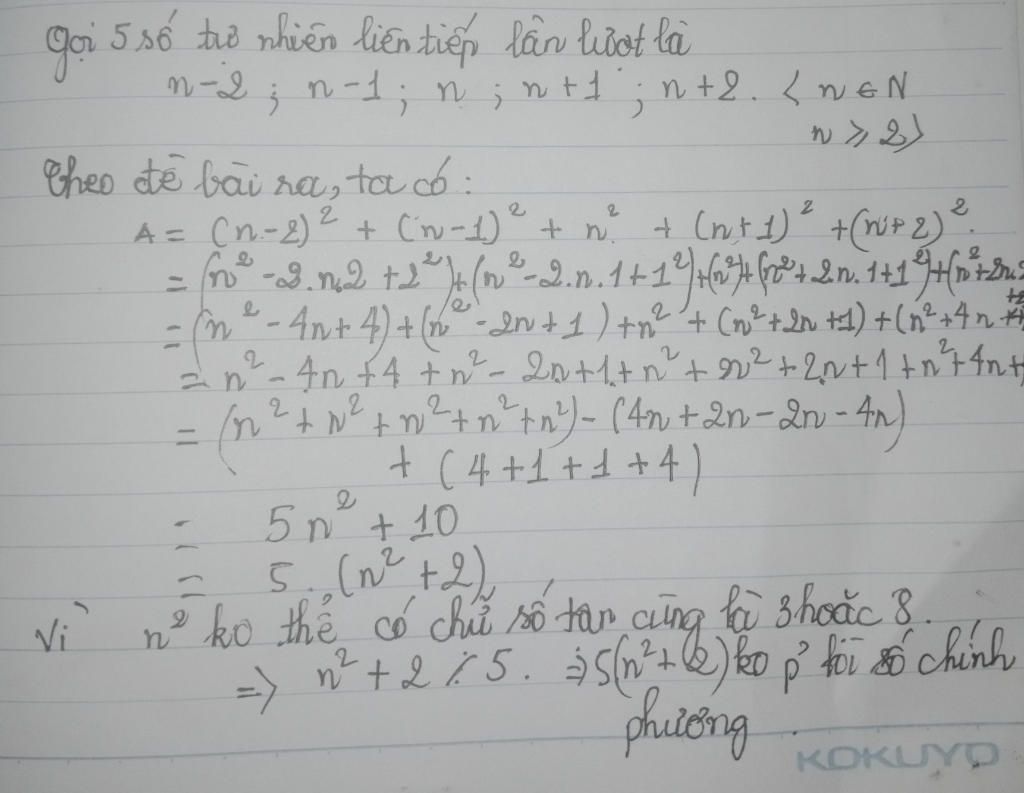 gọi 5 số tự nhiên liên tiếp lần lượt là
n-2 ; n-1 ; n ; n+1 ; n+2. < n ∈ N
n ≥ 2>
Theo đề bài ra, ta có :
A = (n-2)² + (n-1)² + n² + (n+1)² + (n+2)².
= (n² - 2.n.2 + 2²)+(n² - 2.n.1+1²)+(n²)+(n²+2n.1+1²)+(n²+2n.2
= (n² - 4n+4)+(n² - 2n+1)+n² + (n²+2n+1)+(n²+4n+4
= n² - 4n+4 + n² - 2n+1+n² + n² + 2n+1+n²+4n+
= (n² + n² + n² + n² + n²) - (4n+2n-2n-4n)
+ (4+1+1+4)
= 5n² + 10
= 5.(n²+2)
Vì n² ko thể có chữ số tận cùng là 3 hoặc 8.
=> n² + 2 ⋮̸ 5. => 5(n²+2) ko p' là số chính
phương
KOKUYO